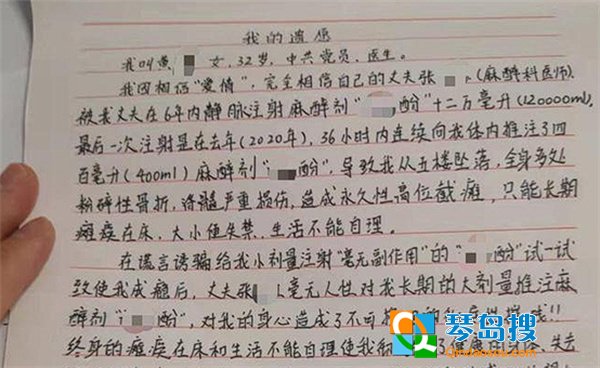 我的遗愿
我叫焦 女,32岁,中共党员、医生。
我因相信“爱情”,完全相信自己的丈夫张 (麻醉科医师).
被我丈夫在6年内静脉注射麻醉剂“ 酚”十二万毫升(120000ml).
最后一次注射是在去年(2020年),36小时内连续向我体内推注了四
百毫升(400ml)麻醉剂“ 酚”,导致我从五楼坠落,全身多处
粉碎性骨折,脊髓严重损伤,造成永久性高位截瘫,只能长期
瘫痪在床、大小便失禁、生活不能自理。
在谎言诱骗给我小剂量注射“毫无副作用”的“ 酚”试一试
致使我成瘾后,丈夫张 毫无人性对我长期的大剂量推注麻
醉剂“ 酚”,对我的身心造成了不可
终身的瘫痪在床和生活不能自理使我 了健康的身体、失去
琴岛搜